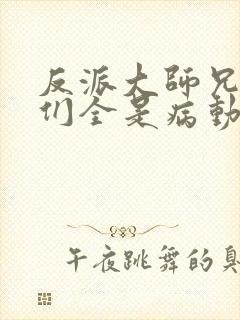 反派大師兄
们全是病勤
午夜跳舞的臭